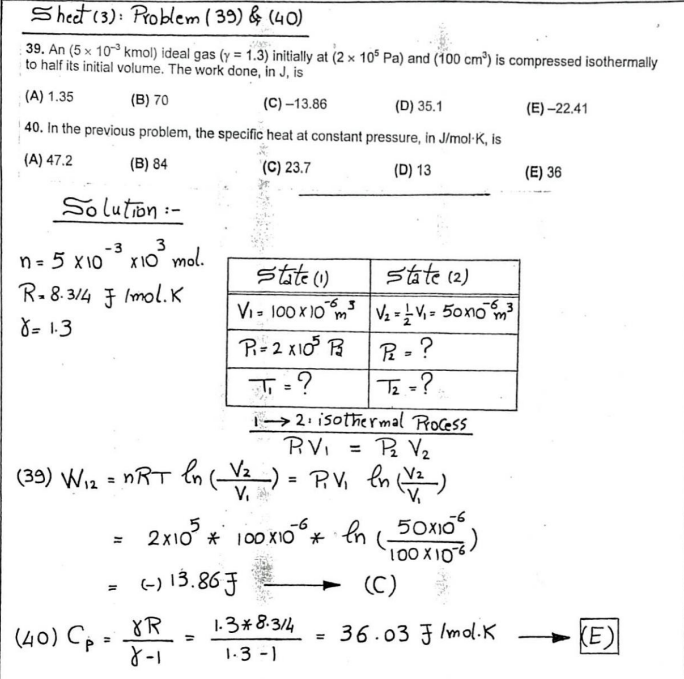 Sheet (3): Problem (39) & (40)
39. An (5 × 10⁻³ kmol) ideal gas (γ = 1.3) initially at (2 × 10⁵ Pa) and (100 cm³) is compressed isothermally
to half its initial volume. The work done, in J, is
(A) 1.35 (B) 70 (C) –13.86 (D) 35.1 (E) –22.41
40. In the previous problem, the specific heat at constant pressure, in J/mol·K, is
(A) 47.2 (B) 84 (C) 23.7 (D) 13 (E) 36
Solution :-
n = 5 x10⁻³ x10³ mol.
R = 8.314 J /mol.K
γ = 1.3
State (1) State (2)
V₁ = 100 x 10⁻⁶ m³ V₂ = ½ V₁ = 50x10⁻⁶ m³
P₁ = 2 x10⁵ Pa P₂ = ?
T₁ = ? T₂ = ?
1 → 2: isothermal Process
P₁V₁ = P₂ V₂
(39) W₁₂ = nRT ln (V₂/V₁) = P₁V₁ ln (V₂/V₁)
= 2x10⁵ * 100 x10⁻⁶ * ln (50x10⁻⁶/100 x10⁻⁶)
= (-) 13.86 J → (C)
(40) Cp = γR/γ-1 = 1.3*8.314/1.3-1 = 36.03 J /mol.K → (E)